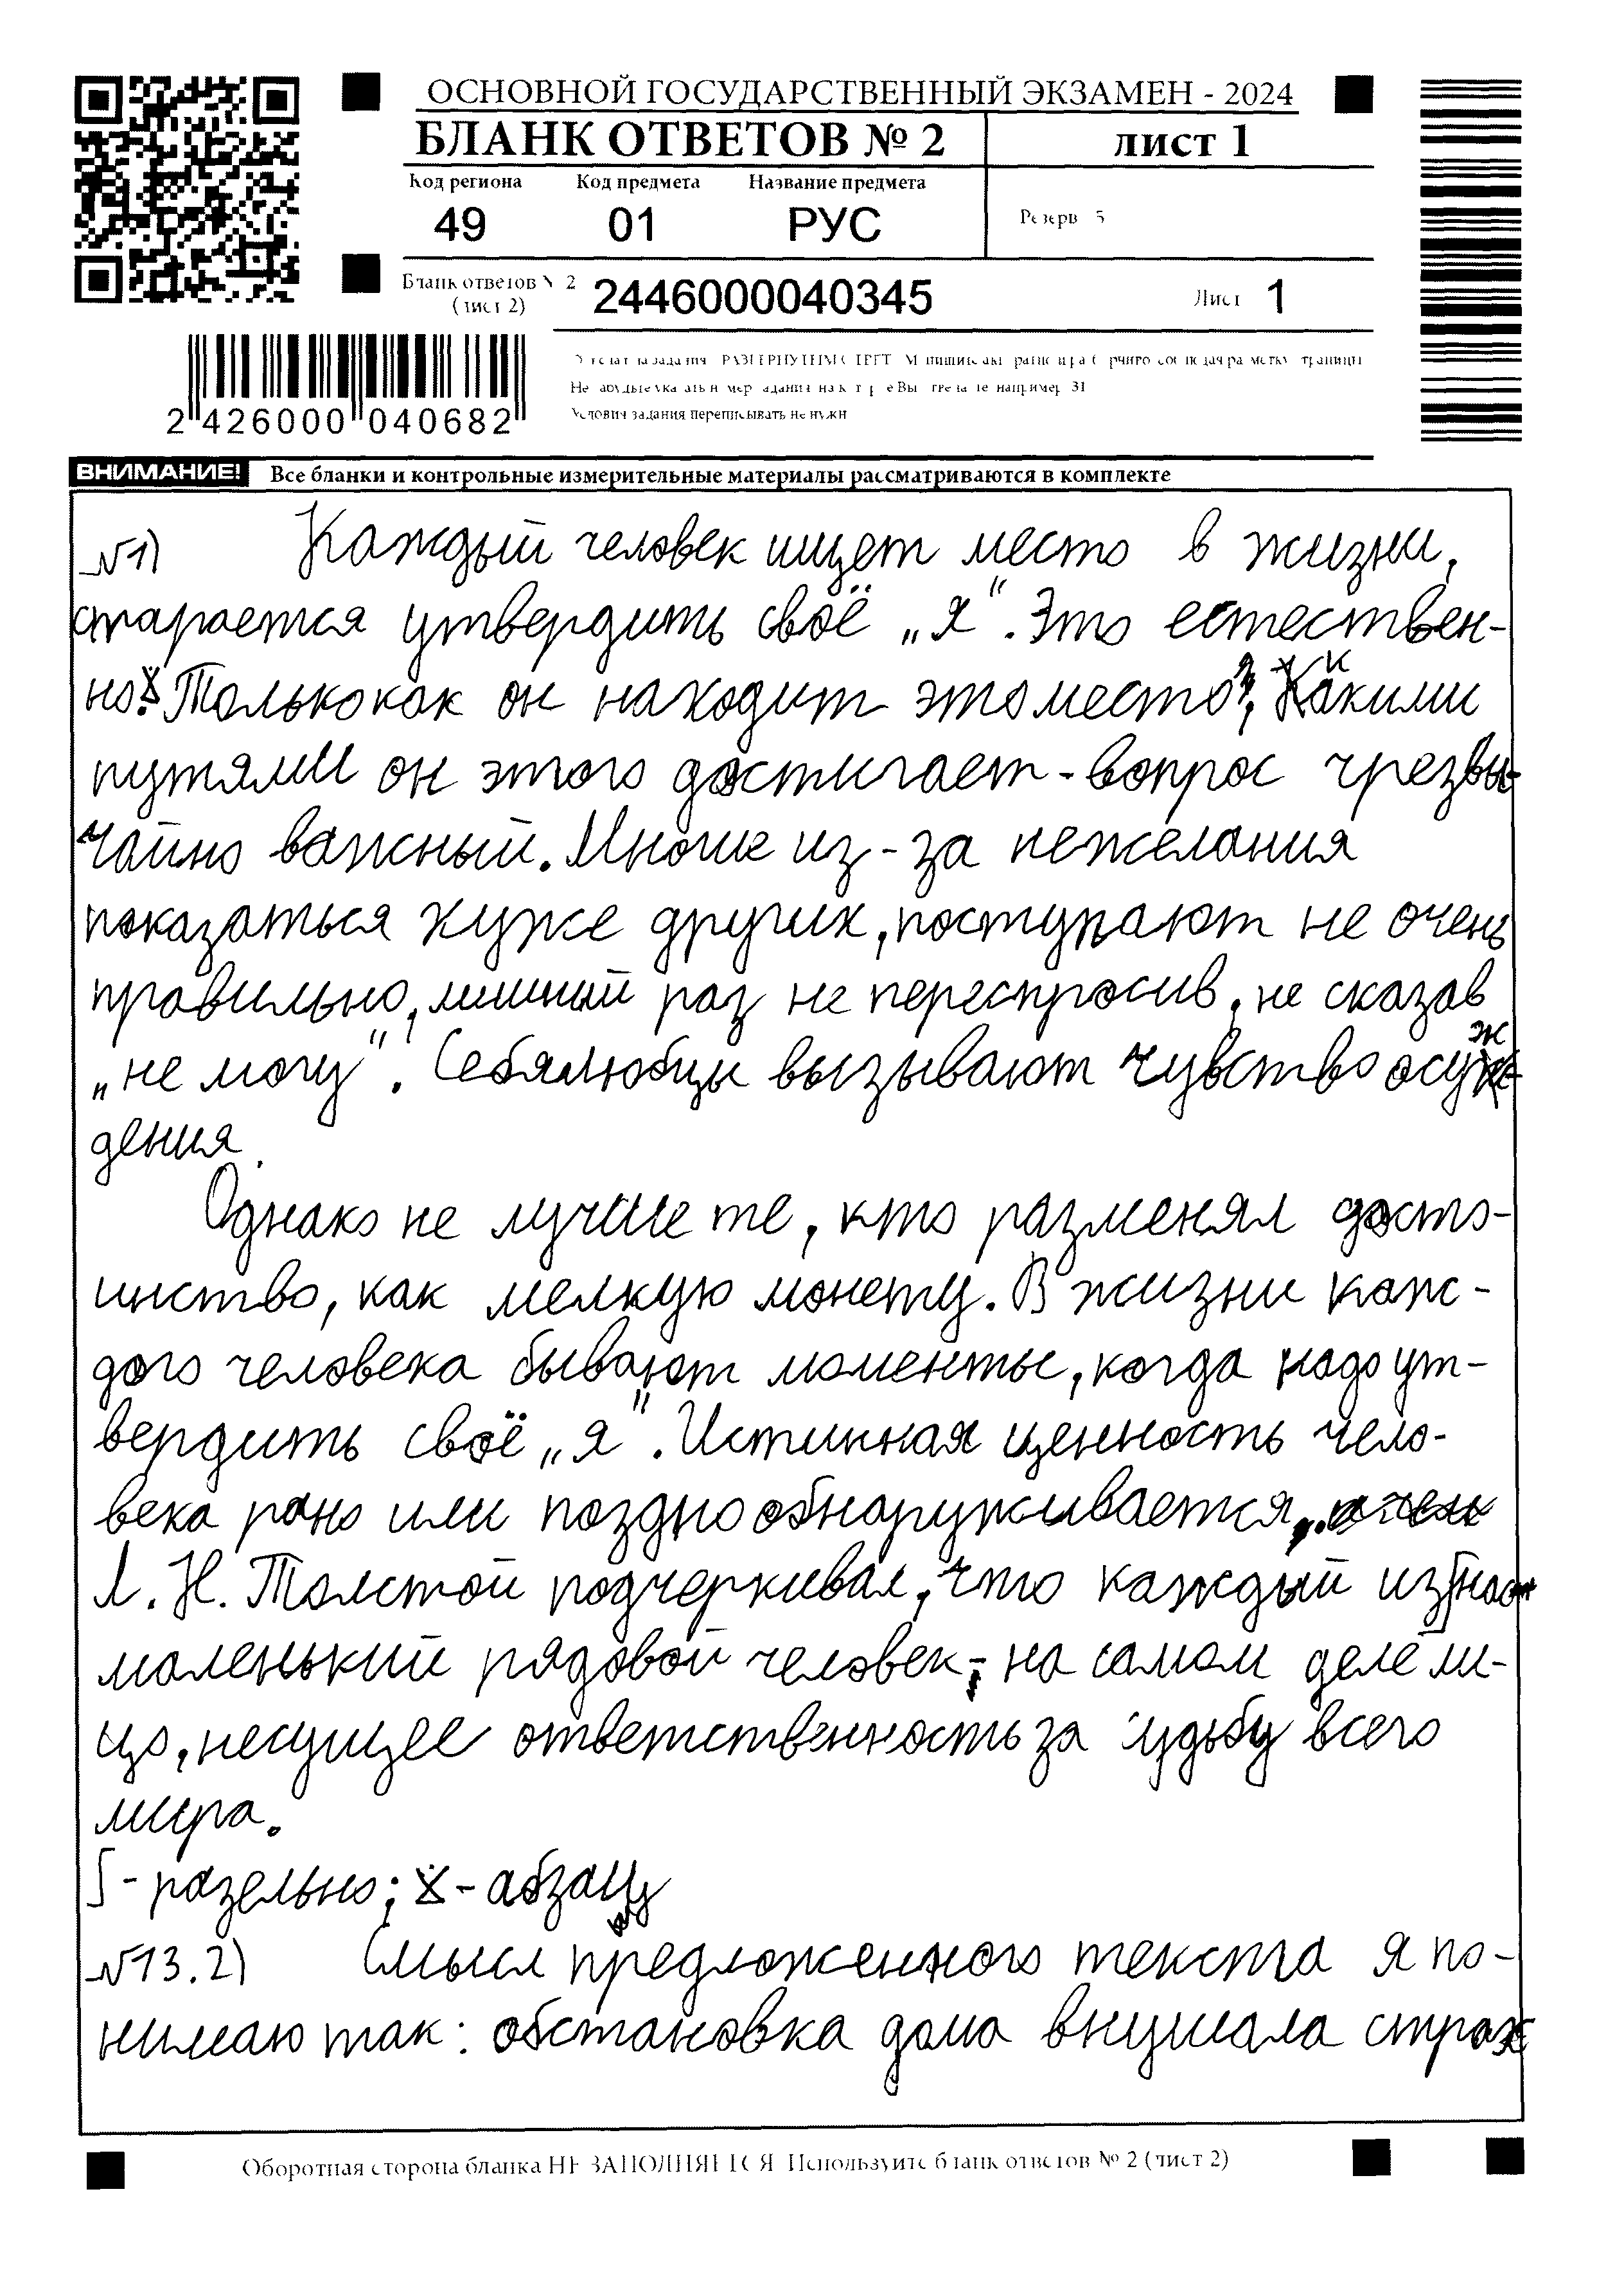 ОСНОВНОЙ ГОСУДАРСТВЕННЫЙ ЭКЗАМЕН - 2024
БЛАНК ОТВЕТОВ № 2
лист 1
Код региона Код предмета Название предмета
49 01 РУС
Резерв 5
Бланк ответов № 2
(лист 2)
2446000040345
Лист 1
2 426000 040682
Условия задания переписывать не нужно
ВНИМАНИЕ! Все бланки и контрольные измерительные материалы рассматриваются в комплекте
№1) Каждый человек ищет место в жизни,
старается утвердить своё „я“. Это естествен-
но. Только как он находит это место? Какими
путями он этого достигает - вопрос чрезвы-
чайно важный. Многие из-за нежелания
показаться хуже других, поступают не очень
правильно, лишний раз не переспросив, не сказав
„не могу“. Себялюбцы вызывают чувство осуж-
дения.
Однако не лучше те, кто разменял досто-
инство, как мелкую монету. В жизни каж-
дого человека бывают моменты, когда надо ут-
вердить своё „я“. Истинная ценность чело-
века рано или поздно обнаруживается.
Л. Н. Толстой подчеркивал, что каждый из нас
маленький рядовой человек, - на самом деле ли-
цо, несущее ответственность за судьбу всего
мира.
∫ - разельно; X - абзац
№13.2) Смысл предложенного текста я по-
нимаю так: обстановка дома внушала страх
Оборотная сторона бланка НЕ ЗАПОЛНЯЕТСЯ. Используйте бланк ответов № 2 (лист 2)